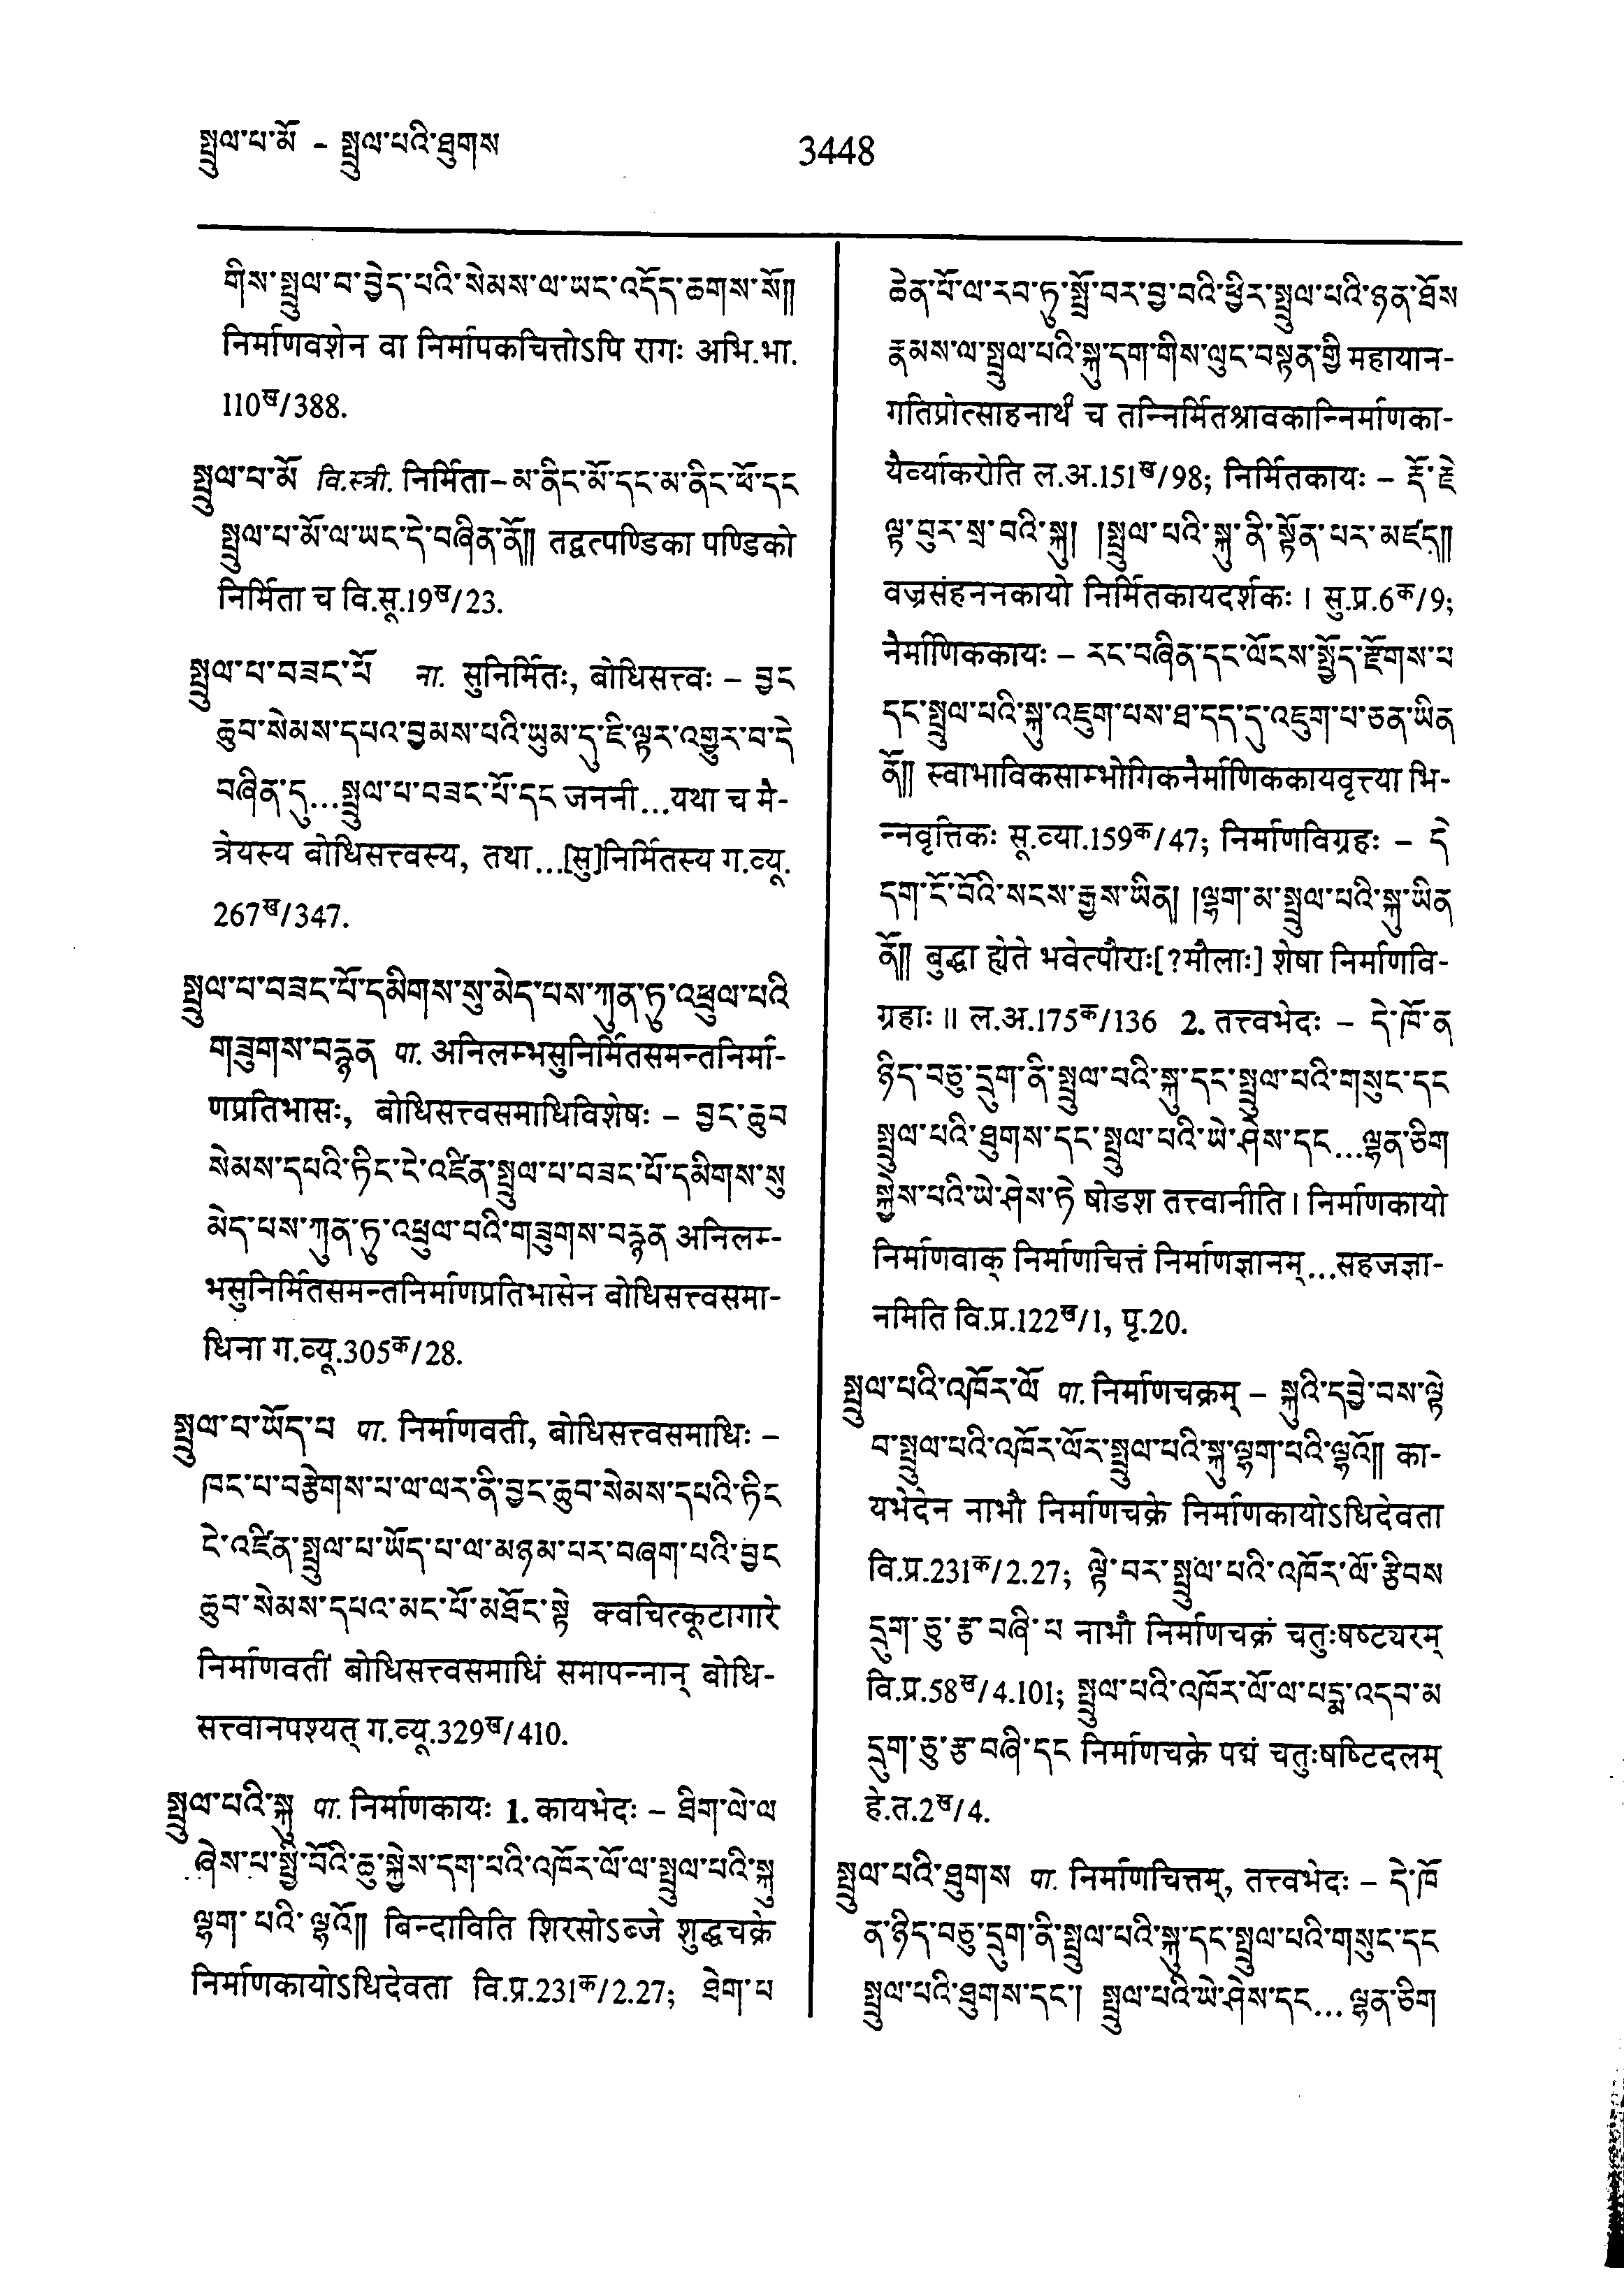 སྤྲུལ་པ་མོ – སྤྲུལ་པའི་ཐུགས
3448
གིས་སྤྲུལ་བ་བྱེད་པའི་སེམས་ལ་ཡང་འདོད་ཆགས་སོ༎
निर्माणवशेन वा निर्मापकचित्तोऽपि रागः अभि.भा.
110ख/388.
སྤྲུལ་པ་མོ वि.स्त्री. निर्मिता–མ་ནིང་མོ་དང་མ་ནིང་ཕོ་དང
སྤྲུལ་པ་མོ་ལ་ཡང་དེ་བཞིན་ནོ༎ तद्वत्पण्डिका पण्डको
निर्मिता च वि.सू.19ख/23.
སྤྲུལ་པ་བཟང་པོ ना. सुनिर्मितः, बोधिसत्त्वः – བྱང
ཆུབ་སེམས་དཔའ་བྱམས་པའི་ཡུམ་དུ་ཇི་ལྟར་འགྱུར་བ་དེ
བཞིན་དུ...སྤྲུལ་པ་བཟང་པོ་དང जननी...यथा च मै-
त्रेयस्य बोधिसत्त्वस्य, तथा...[सु]निर्मितस्य ग.व्यू.
267ख/347.
སྤྲུལ་པ་བཟང་པོ་དམིགས་སུ་མེད་པས་ཀུན་ཏུ་འཕྲུལ་པའི
གཟུགས་བརྙན पा. अनिलम्भसुनिर्मितसमन्तनिर्मा-
णप्रतिभासः, बोधिसत्त्वसमाधिविशेषः – བྱང་ཆུབ
སེམས་དཔའི་ཏིང་ངེ་འཛིན་སྤྲུལ་པ་བཟང་པོ་དམིགས་སུ
མེད་པས་ཀུན་ཏུ་འཕྲུལ་པའི་གཟུགས་བརྙན अनिलम्-
भसुनिर्मितसमन्तनिर्माणप्रतिभासेन बोधिसत्त्वसमा-
धिना ग.व्यू.305क/28.
སྤྲུལ་པ་ཡོད་པ पा. निर्माणवती, बोधिसत्त्वसमाधिः –
ཁང་པ་བརྩེགས་པ་ལ་ལར་ནི་བྱང་ཆུབ་སེམས་དཔའི་ཏིང
ངེ་འཛིན་སྤྲུལ་པ་ཡོད་པ་ལ་མཉམ་པར་བཞག་པའི་བྱང
ཆུབ་སེམས་དཔའ་མང་པོ་མཐོང་སྟེ क्वचित्कूटागारे
निर्माणवतीं बोधिसत्त्वसमाधिं समापन्नान् बोधि-
सत्त्वानपश्यत् ग.व्यू.329ख/410.
སྤྲུལ་པའི་སྐུ पा. निर्माणकायः 1. कायभेदः – ཐིག་ལེ་ལ
ཞེས་པ་སྤྱི་བོའི་ཆུ་སྐྱེས་དག་པའི་འཁོར་ལོ་ལ་སྤྲུལ་པའི་སྐུ
ལྷག་པའི་ལྷའོ༎ बिन्दाविति शिरसोऽब्जे शुद्धचक्रे
निर्माणकायोऽधिदेवता वि.प्र.231क/2.27; ཐེག་པ
ཆེན་པོ་ལ་རབ་ཏུ་སྤྲོ་བར་བྱ་བའི་ཕྱིར་སྤྲུལ་པའི་ཉན་ཐོས
རྣམས་ལ་སྤྲུལ་པའི་སྐུ་དག་གིས་ལུང་བསྟན་གྱི महायान-
गतिप्रोत्साहनार्थं च तन्निर्मितश्रावकान्निर्माणका-
यैर्व्याकरोति ल.अ.151ख/98; निर्मितकायः – རྡོ་རྗེ
ལྟ་བུར་སྲ་བའི་སྐུ། །སྤྲུལ་པའི་སྐུ་ནི་སྟོན་པར་མཛད༎
वज्रसंहननकायो निर्मितकायदर्शकः । सु.प्र.6क/9;
नैर्माणिककायः – རང་བཞིན་དང་ལོངས་སྤྱོད་རྫོགས་པ
དང་སྤྲུལ་པའི་སྐུ་འཇུག་པས་ཐ་དད་དུ་འཇུག་པ་ཅན་ཡིན
ནོ༎ स्वाभाविकसाम्भोगिकनैर्माणिककायवृत्त्या भि-
न्नवृत्तिकः सू.व्या.159क/47; निर्माणविग्रहः – དེ
དག་ངོ་བོའི་སངས་རྒྱས་ཡིན། །ལྷག་མ་སྤྲུལ་པའི་སྐུ་ཡིན
ནོ༎ बुद्धा ह्येते भवेत्पौराः[?मौलाः] शेषा निर्माणवि-
ग्रहाः ॥ ल.अ.175क/136 2. तत्त्वभेदः – དེ་ཁོ་ན
ཉིད་བཅུ་དྲུག་ནི་སྤྲུལ་པའི་སྐུ་དང་སྤྲུལ་པའི་གསུང་དང
སྤྲུལ་པའི་ཐུགས་དང་སྤྲུལ་པའི་ཡེ་ཤེས་དང...ལྷན་ཅིག
སྐྱེས་པའི་ཡེ་ཤེས་ཏེ षोडश तत्त्वानीति । निर्माणकायो
निर्माणवाक् निर्माणचित्तं निर्माणज्ञानम्...सहजज्ञा-
नमिति वि.प्र.122ख/1, पृ.20.
སྤྲུལ་པའི་འཁོར་ལོ पा. निर्माणचक्रम् – སྐུའི་དབྱེ་བས་ལྟེ
བ་སྤྲུལ་པའི་འཁོར་ལོར་སྤྲུལ་པའི་སྐུ་ལྷག་པའི་ལྷའོ༎ का-
यभेदेन नाभौ निर्माणचक्रे निर्माणकायोऽधिदेवता
वि.प्र.231क/2.27; ལྟེ་བར་སྤྲུལ་པའི་འཁོར་ལོ་རྩིབས
དྲུག་ཅུ་རྩ་བཞི་པ नाभौ निर्माणचक्रं चतुःषष्ट्यरम्
वि.प्र.58ख/4.101; སྤྲུལ་པའི་འཁོར་ལོ་ལ་པདྨ་འདབ་མ
དྲུག་ཅུ་རྩ་བཞི་དང निर्माणचक्रे पद्मं चतुःषष्टिदलम्
हे.त.2ख/4.
སྤྲུལ་པའི་ཐུགས पा. निर्माणचित्तम्, तत्त्वभेदः – དེ་ཁོ
ན་ཉིད་བཅུ་དྲུག་ནི་སྤྲུལ་པའི་སྐུ་དང་སྤྲུལ་པའི་གསུང་དང
སྤྲུལ་པའི་ཐུགས་དང་། སྤྲུལ་པའི་ཡེ་ཤེས་དང... ལྷན་ཅིག